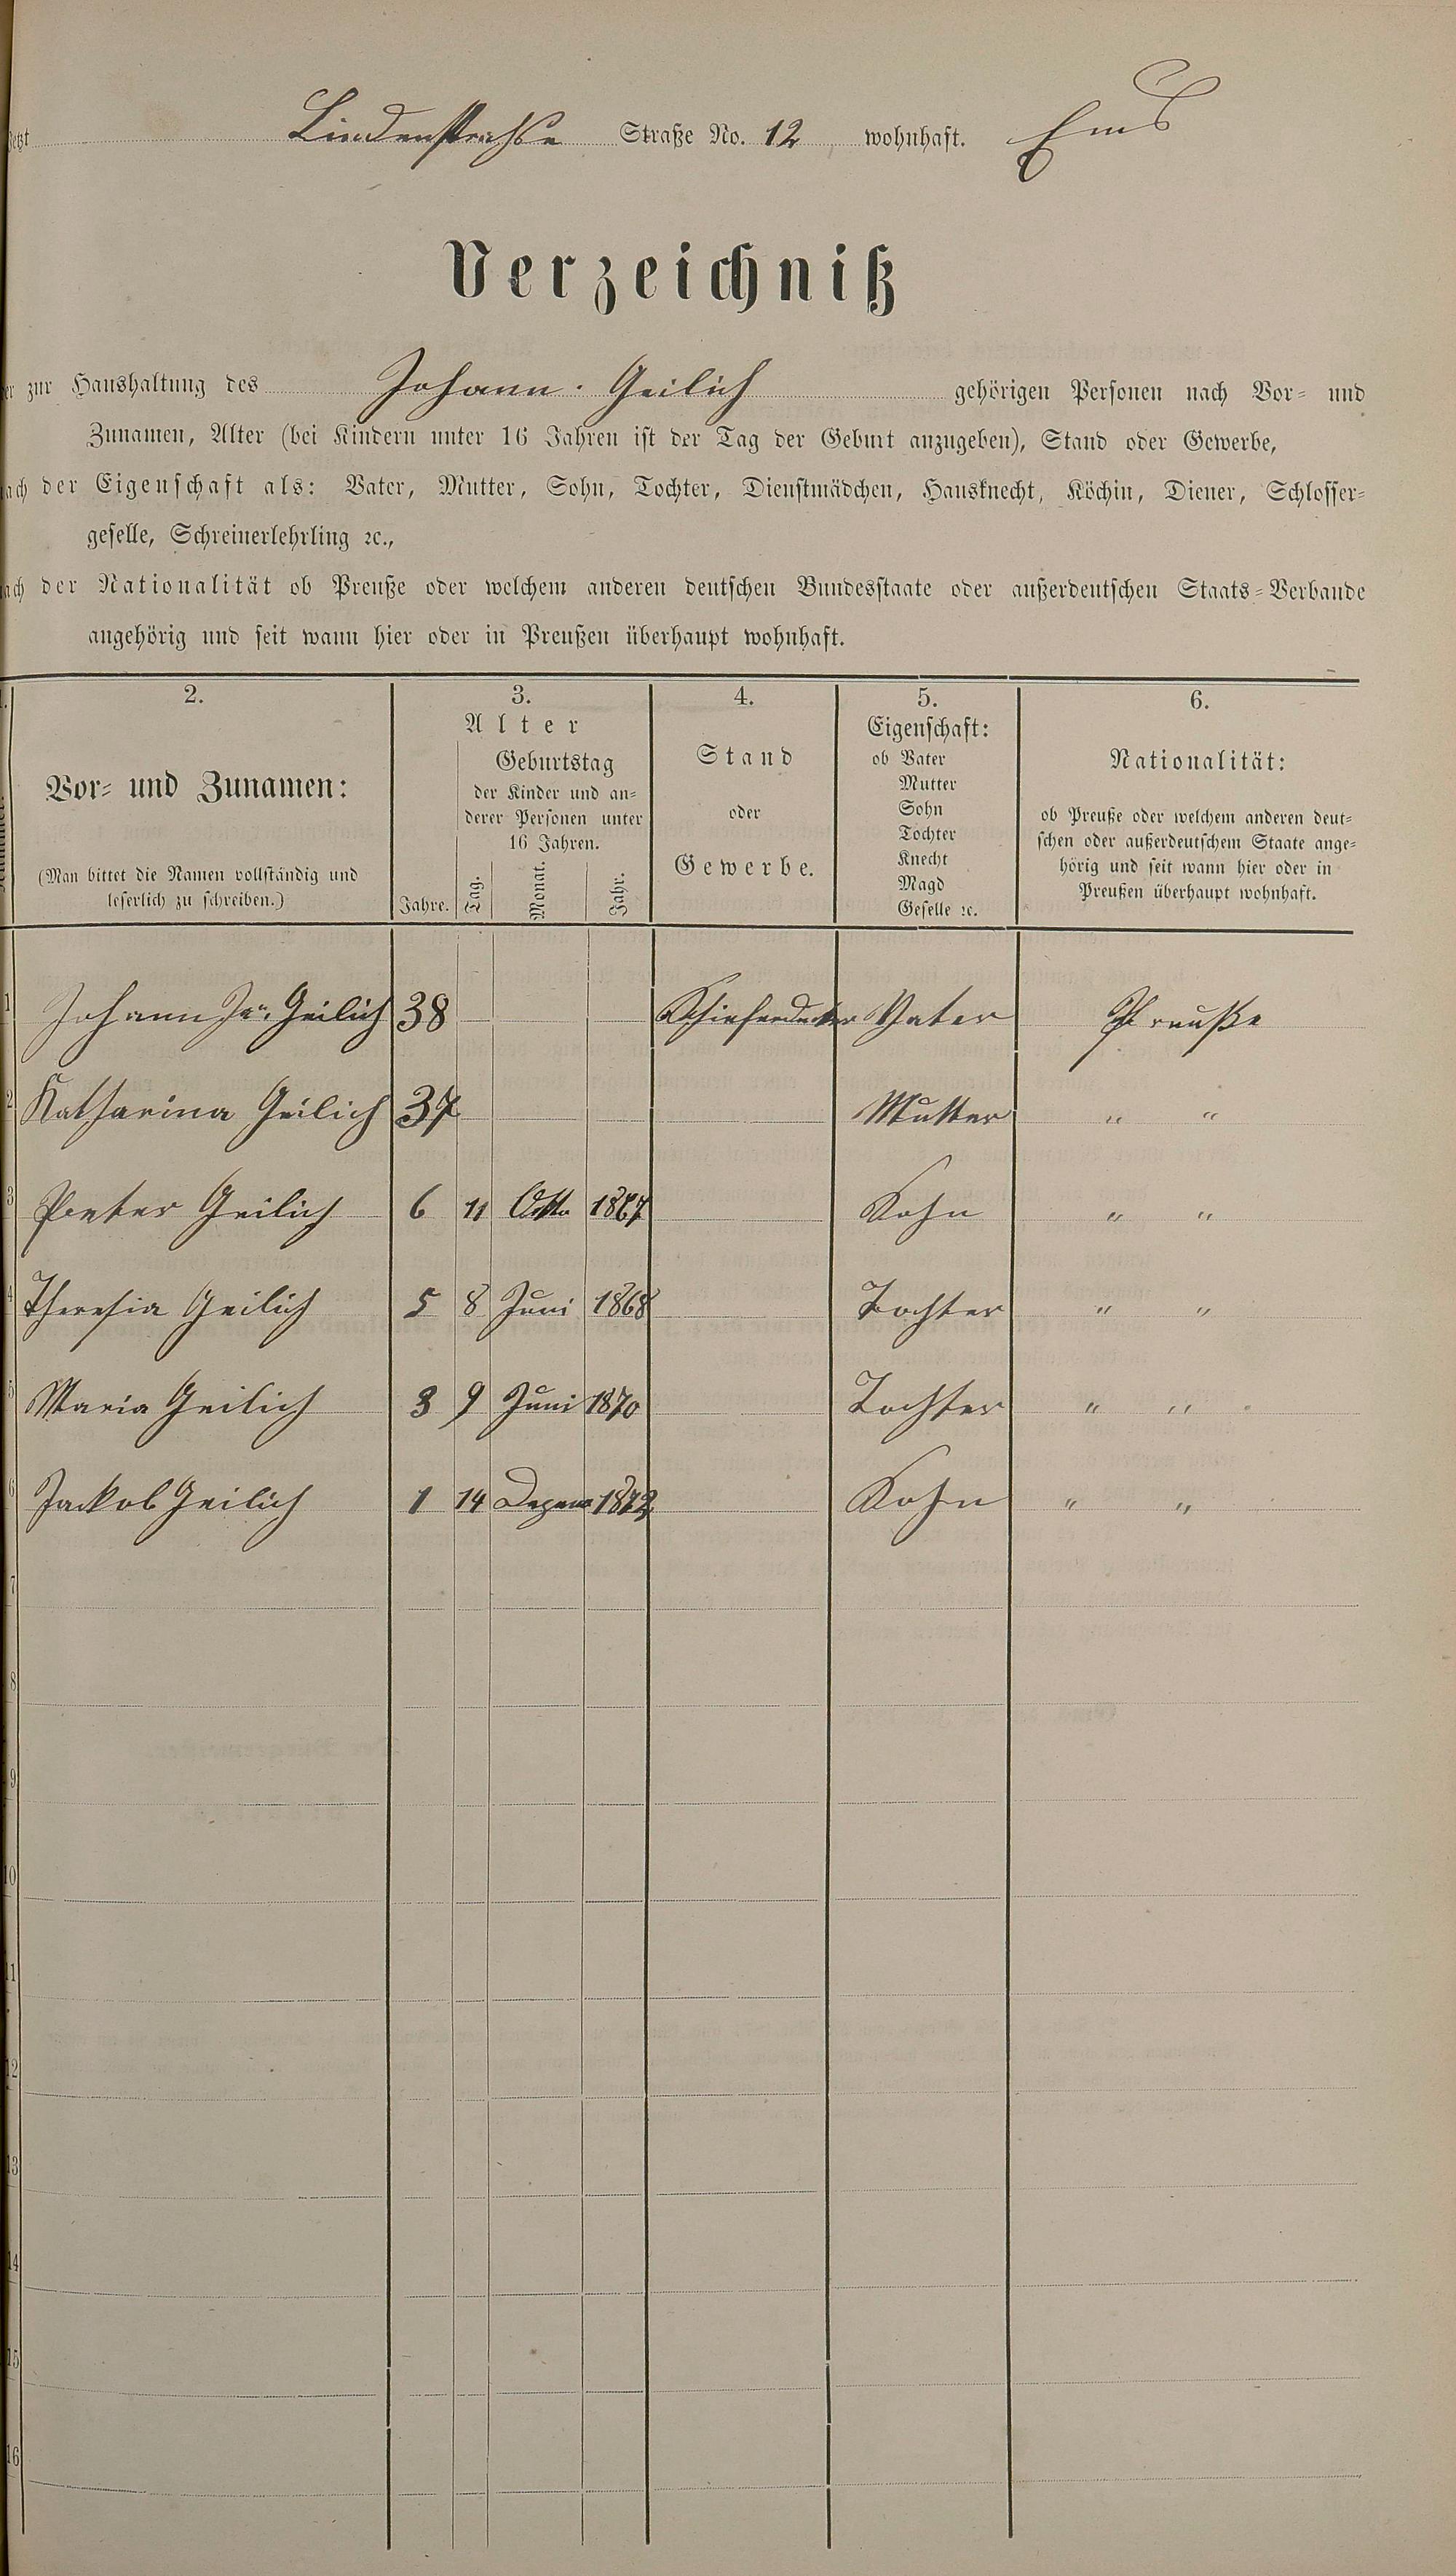 Jetzt Lindenstrahse Straße No. 12 wohnhaft. Ems
Verzeichniß
der zur Haushaltung des Johann Geilich gehörigen Personen nach Vor- und
Zunamen, Alter (bei Kindern unter 16 Jahren ist der Tag der Geburt anzugeben), Stand oder Gewerbe,
nach der Eigenschaft als: Vater, Mutter, Sohn, Tochter, Dienstmädchen, Hausknecht, Köchin, Diener, Schlosser-
geselle, Schreinerlehrling ꝛc.,
nach der Nationalität ob Preuße oder welchem anderen deutschen Bundesstaate oder außerdeutschen Staats-Verbande
angehörig und seit wann hier oder in Preußen überhaupt wohnhaft.
1.
2.
Vor- und Zunamen:
(Man bittet die Namen vollständig und
leserlich zu schreiben.)
3.
Alter
Geburtstag
der Kinder und an-
derer Personen unter
16 Jahren.
Jahre. Tag. Monat. Jahr.
4.
Stand
oder
Gewerbe.
5.
Eigenschaft:
ob Vater
Mutter
Sohn
Tochter
Knecht
Magd
Geselle ꝛc.
6.
Nationalität:
ob Preuße oder welchem anderen deut-
schen oder außerdeutschem Staate ange-
hörig und seit wann hier oder in
Preußen überhaupt wohnhaft.
1 Johann Geilich 38 Schieferdecker Vater Preuße
2 Katharina Geilich 37 Mutter " "
3 Peeter Geilich 6 11 1867 Sohn " "
4 Theresia Geilich 5 8 Juni 1868 Tochter " "
5 Maria Geilich 3 9 Juni 1870 Tochter " "
6 Jackob Geilich 1 14 1872 Sohn " "
7
8
9
10
11
12
13
14
15
16